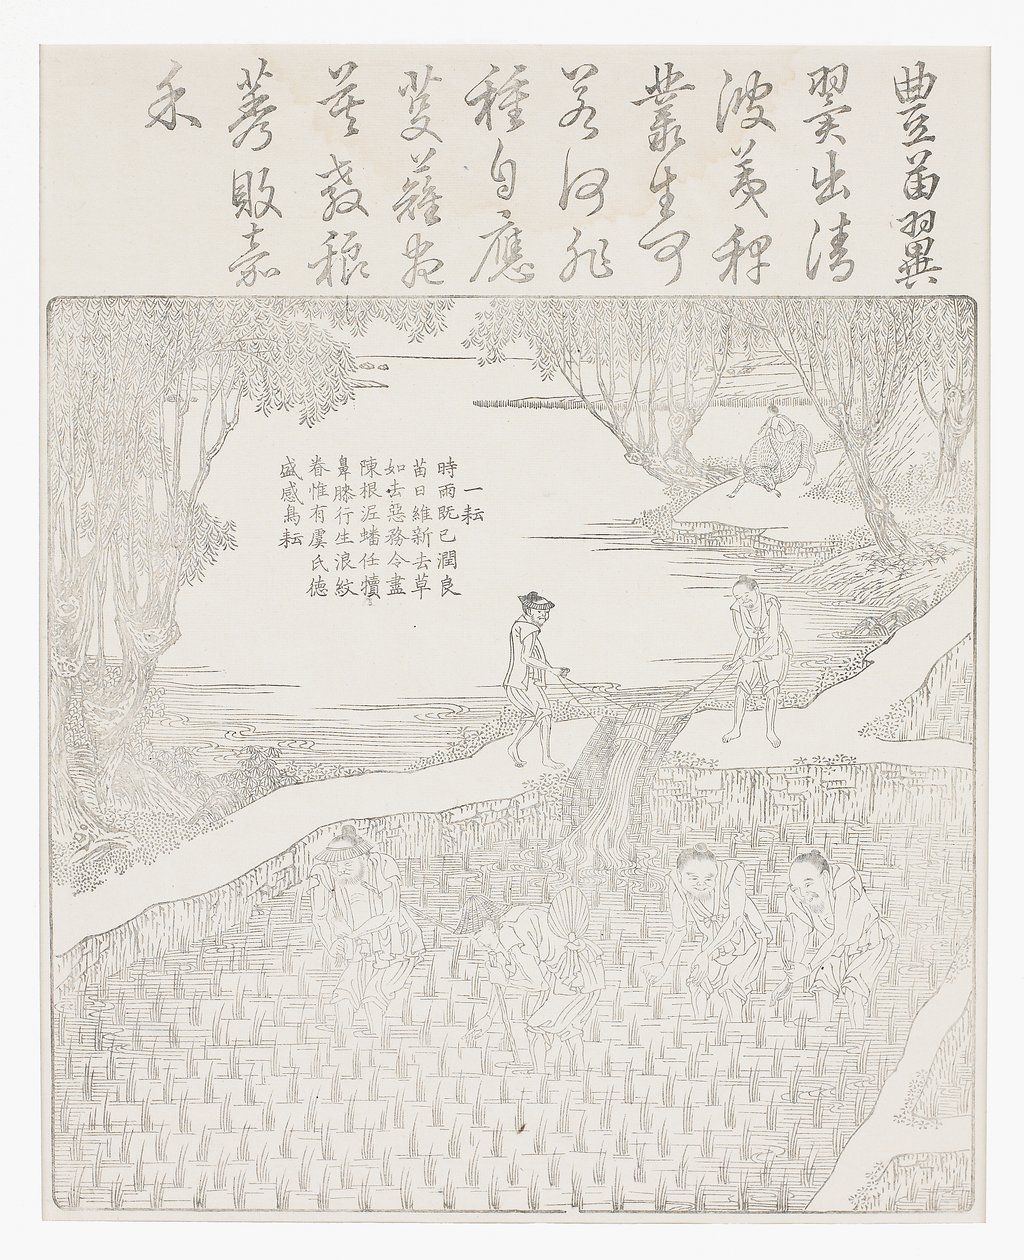 豊苗翼
翼出清
波荑稗
叢生可
若何非
種自應
芟薙盡
莫教稂
莠敗嘉
禾
一耘
時雨既已潤良
苗日維新去草
如去惡務令盡
陳根泥蟠任犢
鼻膝行生浪紋
眷惟有虞氏德
盛感鳥耘